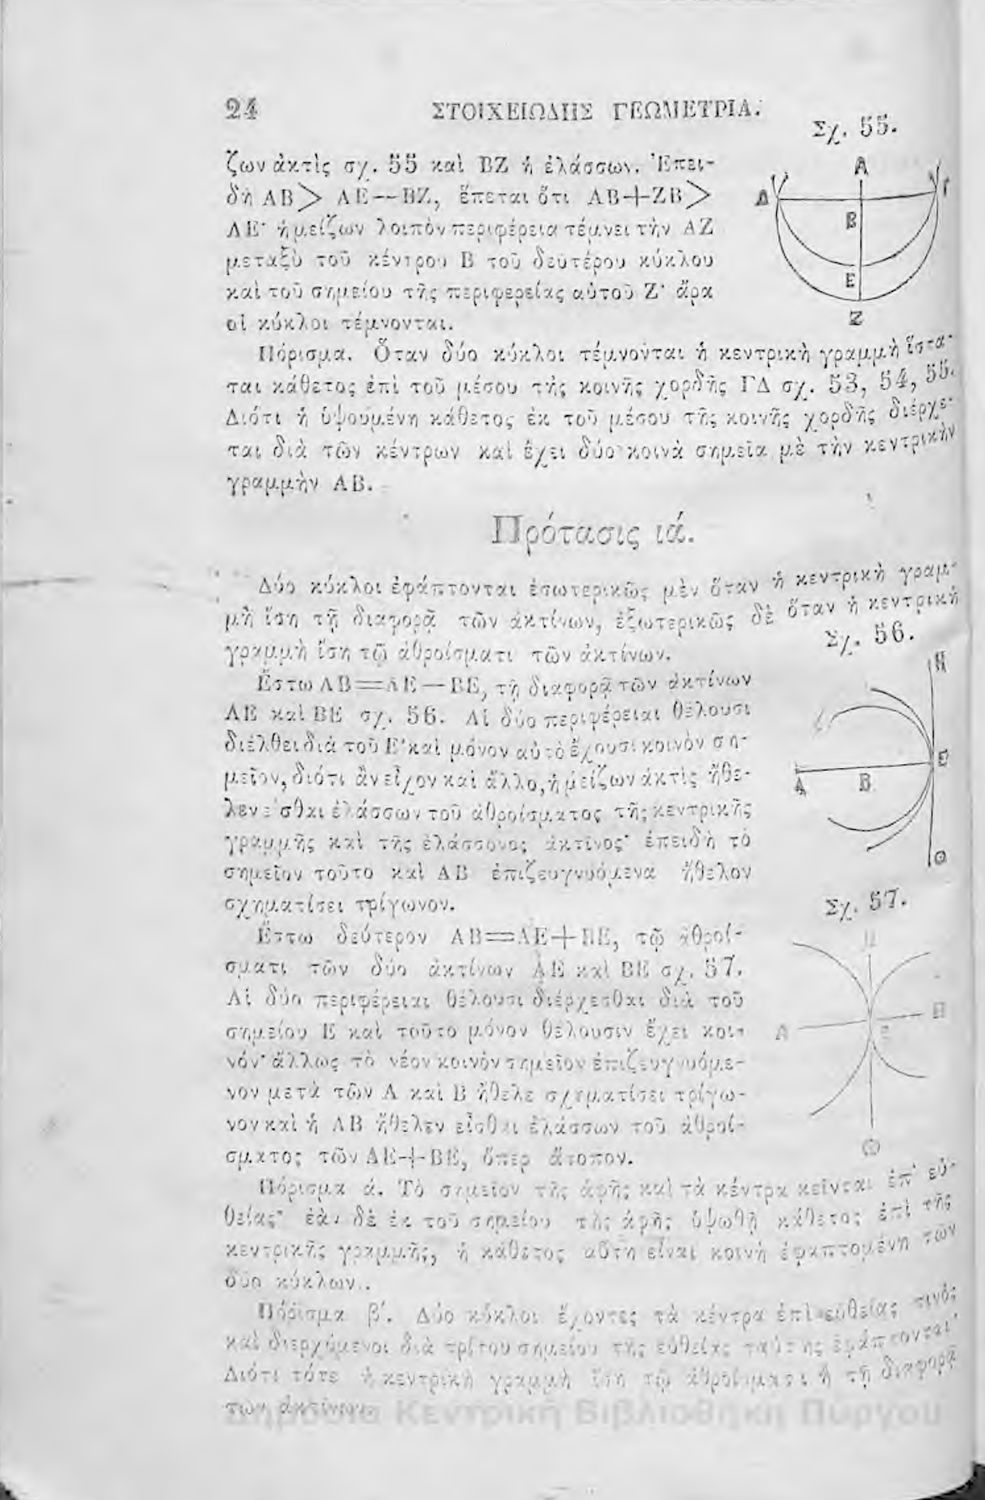 24 ΣΤΟΙΧΕΙΩΔΗΣ ΓΕΩΜΕΤΡΙΑ.
Σχ. 55.
ζων ἀκτὶς σχ. 55 καὶ ΒΖ ἡ ἐλάσσων. Ἐπει-
δὴ ΑΒ> ΑΕ—ΒΖ, ἕπεται ὅτι ΑΒ+ΖΒ>
ΑΕ· ἡ μείζων λοιπὸν περιφέρεια τέμνει τὴν ΑΖ
μεταξὺ τοῦ κέντρου Β τοῦ δευτέρου κύκλου
καὶ τοῦ σημείου τῆς περιφερείας αὐτοῦ Ζ· ἄρα
οἱ κύκλοι τέμνονται.
Α
Δ
Γ
Β
Ε
Ζ
Πόρισμα. Ὅταν δύο κύκλοι τέμνονται ἡ κεντρικὴ γραμμὴ ἵστα-
ται κάθετος ἐπὶ τοῦ μέσου τῆς κοινῆς χορδῆς ΓΔ σχ. 53, 54, 55.
Διότι ἡ ὑψουμένη κάθετος ἐκ τοῦ μέσου τῆς κοινῆς χορδῆς διέρχε-
ται διὰ τῶν κέντρων καὶ ἔχει δύο κοινὰ σημεῖα μὲ τὴν κεντρικὴν
γραμμὴν ΑΒ.
Πρότασις ιά.
Δύο κύκλοι ἐφάπτονται ἐσωτερικῶς μὲν ὅταν ἡ κεντρικὴ γραμ-
μὴ ἴση τῇ διαφορᾷ τῶν ἀκτίνων, ἐξωτερικῶς δὲ ὅταν ἡ κεντρικὴ
γραμμὴ ἴση τῷ ἀθροίσματι τῶν ἀκτίνων.
Σχ. 56.
Ἔστω ΑΒ=ΑΕ—ΒΕ, τῇ διαφορᾷ τῶν ἀκτίνων
ΑΕ καὶ ΒΕ σχ. 56. Αἱ δύο περιφέρειαι θέλουσι
διέλθει διὰ τοῦ Ε· καὶ μόνον αὐτὸ ἔχουσι κοινὸν ση-
μεῖον, διότι ἂν εἶχον καὶ ἄλλο, ἡ μείζων ἀκτὶς ἤθε-
λεν εἶσθαι ἐλάσσων τοῦ ἀθροίσματος τῆς κεντρικῆς
γραμμῆς καὶ τῆς ἐλάσσονος ἀκτῖνος· ἐπειδὴ τὸ
σημεῖον τοῦτο καὶ ΑΒ ἐπιζευγνυόμενα ἤθελον
σχηματίσει τρίγωνον.
Η
Ε
Α
Β
Θ
Σχ. 57.
Ἔστω δεύτερον ΑΒ=ΑΕ+ΒΕ, τῷ ἀθροί-
σματι τῶν δύο ἀκτίνων ΑΕ καὶ ΒΕ σχ. 57.
Αἱ δύο περιφέρειαι θέλουσι διέρχεσθαι διὰ τοῦ
σημείου Ε καὶ τοῦτο μόνον θέλουσιν ἔχει κοι-
νόν· ἄλλως τὸ νέον κοινὸν σημεῖον ἐπιζευγνυόμε-
νον μετὰ τῶν Α καὶ Β ἤθελε σχηματίσει τρίγω-
νον καὶ ἡ ΑΒ ἤθελεν εἶσθαι ἐλάσσων τοῦ ἀθροί-
σματος τῶν ΑΕ+ΒΕ, ὅπερ ἄτοπον.
Α
Ε
Θ
Πόρισμα ά. Τὸ σημεῖον τῆς ἁφῆς καὶ τὰ κέντρα κεῖνται ἐπ' εὐ-
θείας· ἐὰν δὲ ἐκ τοῦ σημείου τῆς ἁφῆς ὑψωθῇ κάθετος ἐπὶ τῆς
κεντρικῆς γραμμῆς, ἡ κάθετος αὕτη εἶναι κοινὴ ἐφαπτομένη τῶν
δύο κύκλων.
Πόρισμα β'. Δύο κύκλοι ἔχοντες τὰ κέντρα ἐπὶ εὐθείας τινὸς
καὶ διερχόμενοι διὰ τρίτου σημείου τῆς εὐθείας ταύτης ἐφάπτονται·
Διότι τότε ἡ κεντρικὴ γραμμὴ ἴση τῷ ἀθροίσματι ἢ τῇ διαφορᾷ
των ἀκτίνων.
Δημόσια Κεντρική Βιβλιοθήκη Πύργου